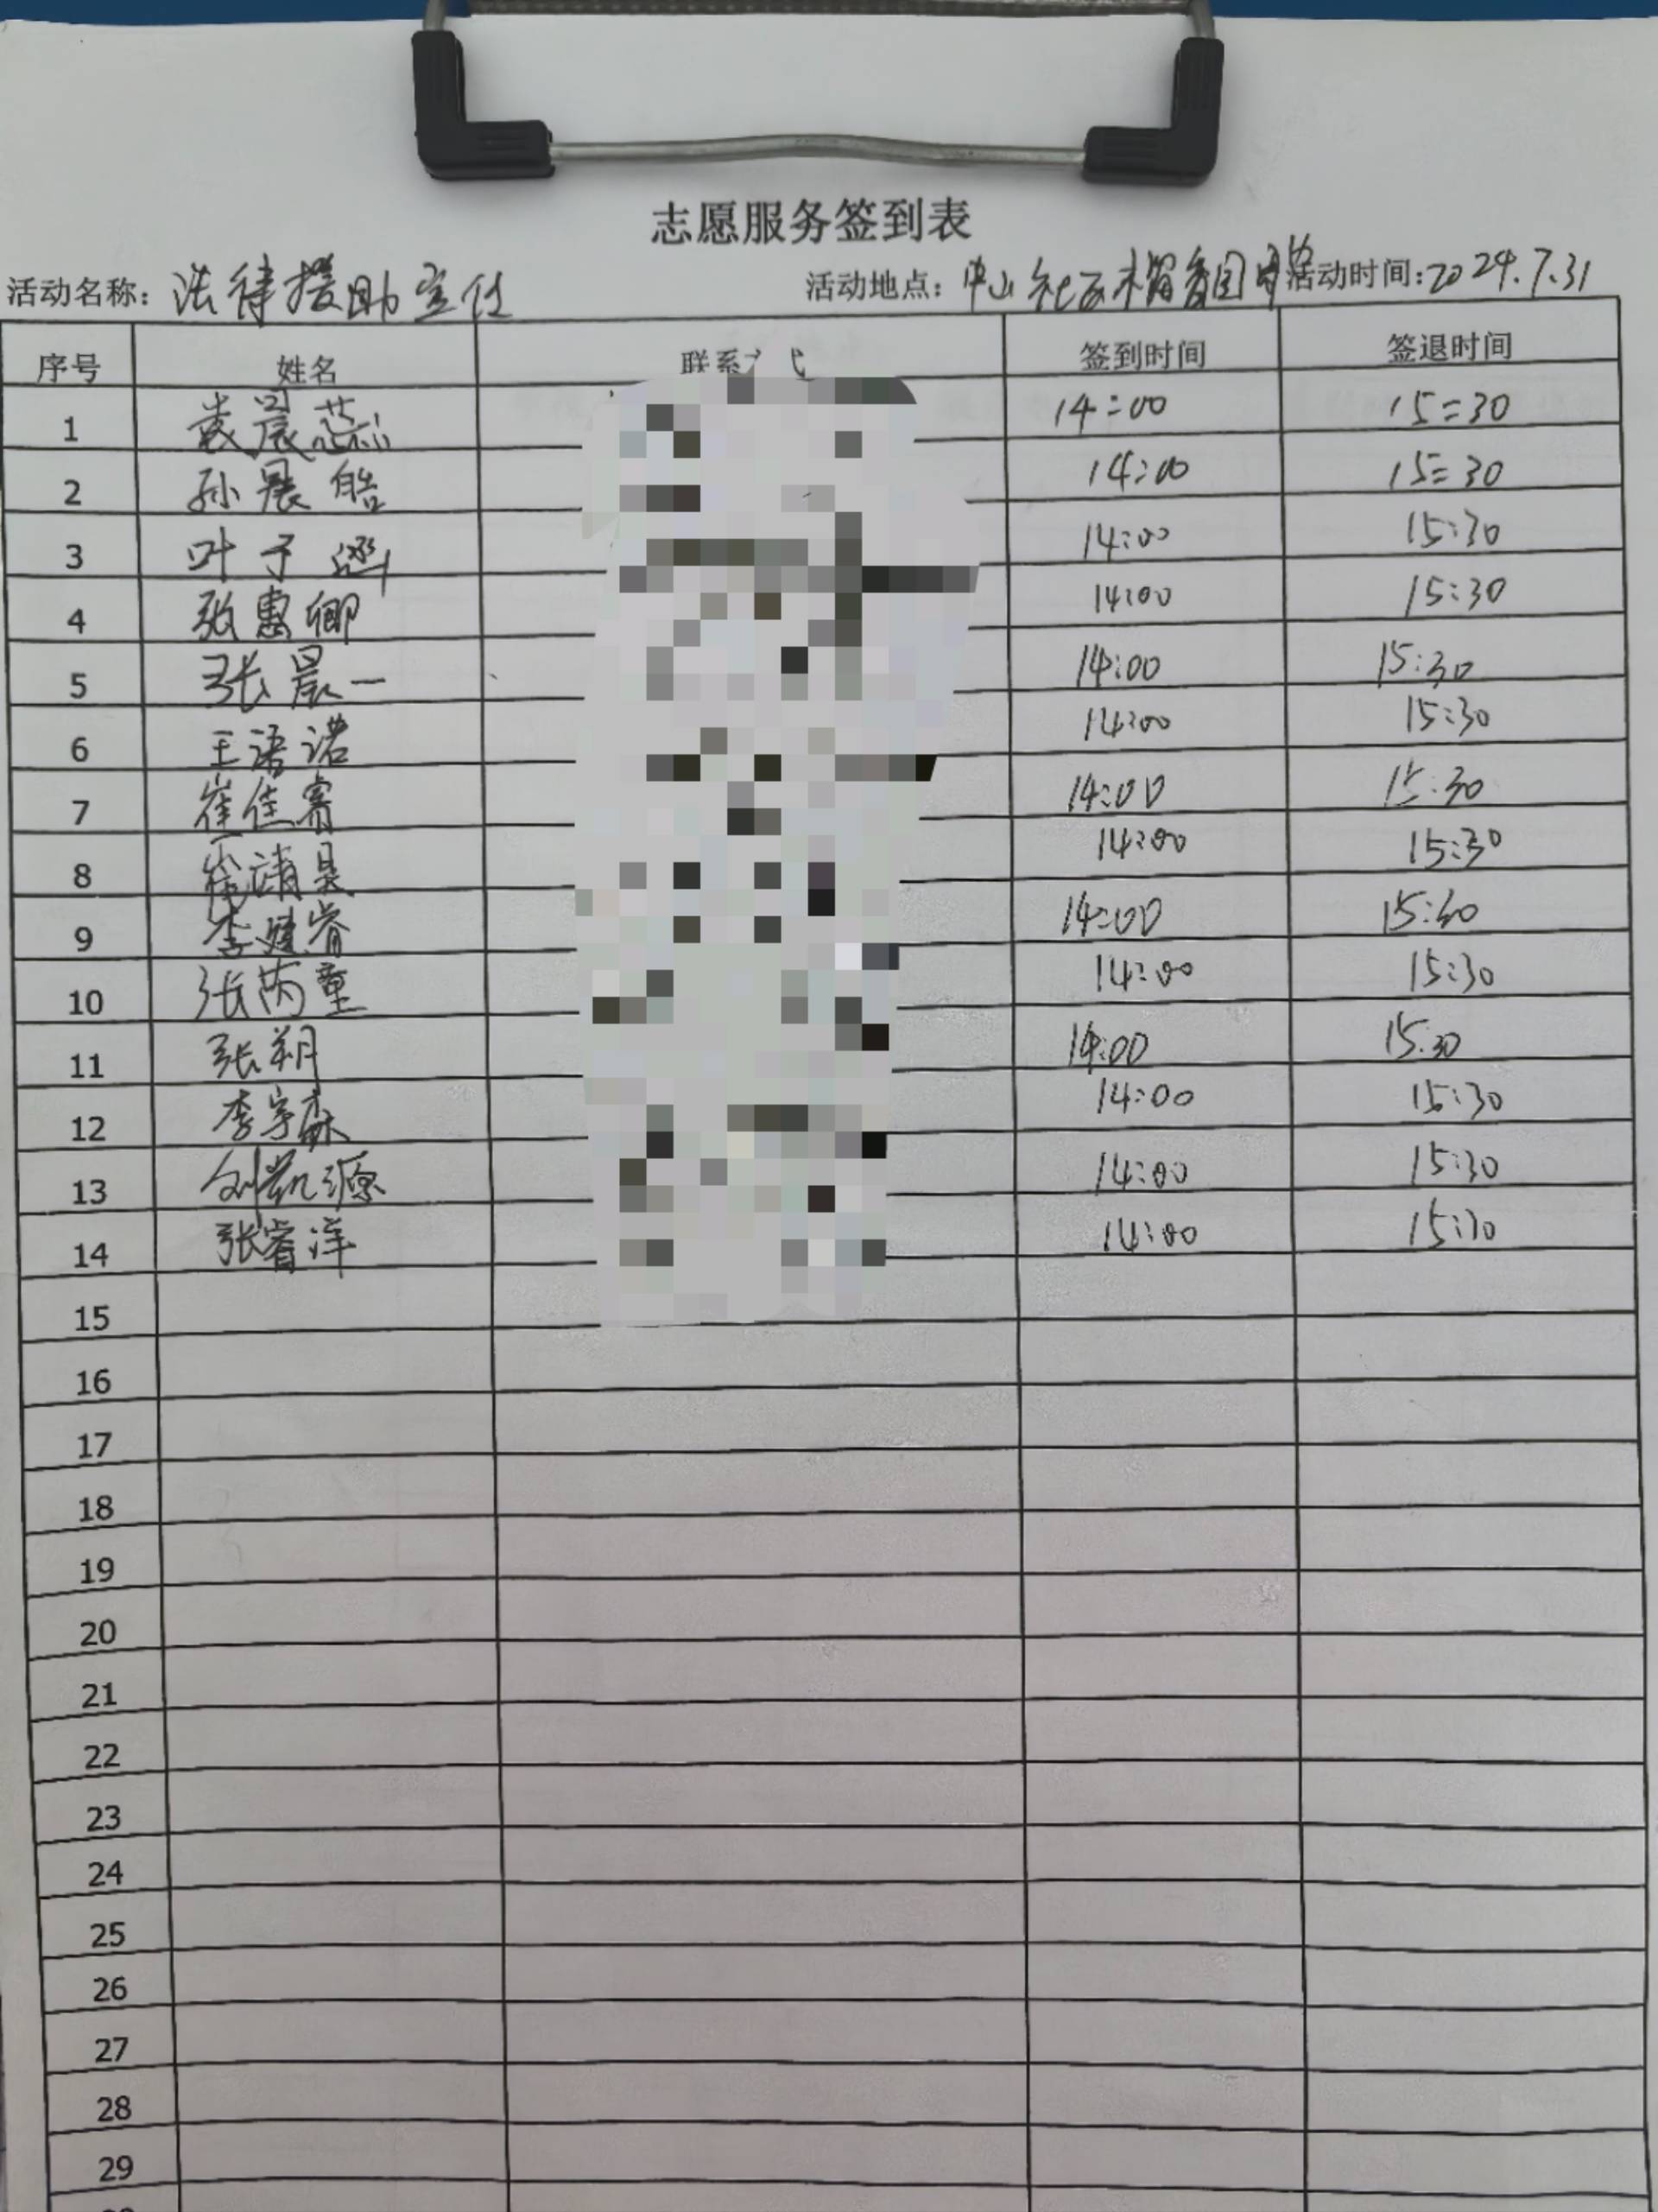 志愿服务签到表
活动名称：法律援助宣传 活动地点：中山社区榴香园 活动时间：2024.7.31
序号 姓名 联系方式 签到时间 签退时间
1 晨蕊 14:00 15:30
2 孙晨皓 14:00 15:30
3 叶子涵 14:00 15:30
4 张惠卿 14:00 15:30
5 张晨一 14:00 15:30
6 王语诺 14:00 15:30
7 崔佳睿 14:00 15:30
8 14:00 15:30
9 李健睿 14:00 15:30
10 张芮童 14:00 15:30
11 张朔 14:00 15.30
12 李宇霖 14:00 15:30
13 刘凯源 14:00 15:30
14 张睿洋 14:00 15:30
15
16
17
18
19
20
21
22
23
24
25
26
27
28
29